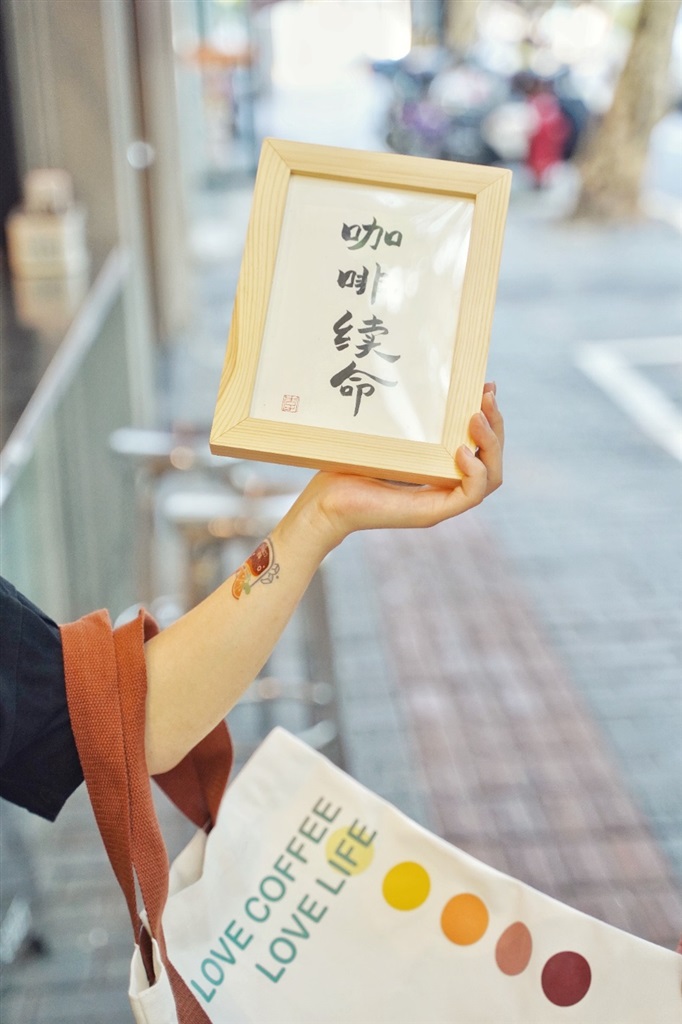 咖啡续命
LOVE COFFEE
LOVE LIFE